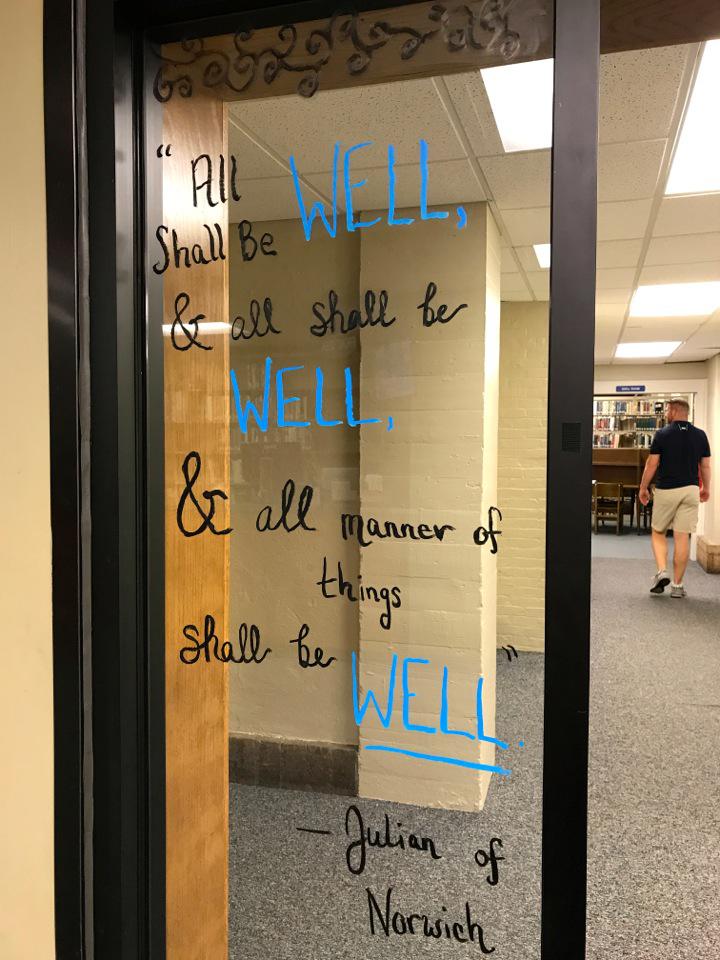 "All
Shall Be WELL,
& all shall be
WELL,
& all manner of
things
shall be WELL."
— Julian of
Norwich